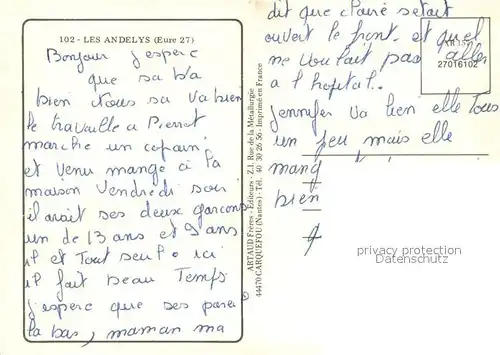 102 - LES ANDELYS (Eure 27)
Bonjour j'esperc
que sa va
bien Nous sa va bien
le travaille a Pierret
marche un copain
et venu mange à la
maison Vendredi soir
il avait ses deux garcons
un de 13 ans et 9 ans
il et Tout seul. ici
il fait beau Temps
j'esperc que ses parei
la bas, maman ma
dit que claire setait
ouvert le front et quel
me voulait pas aller
a l'hopital..
jennifer va bien elle Tous
un peu mais elle
mang
bien
27016102
ARTAUD Frères - Editeurs - Z.I. Rue de la Métallurgie
44470 CARQUEFOU (Nantes) - Tél. 40 30 26 56 - Imprimé en France
privacy protection
Datenschutz